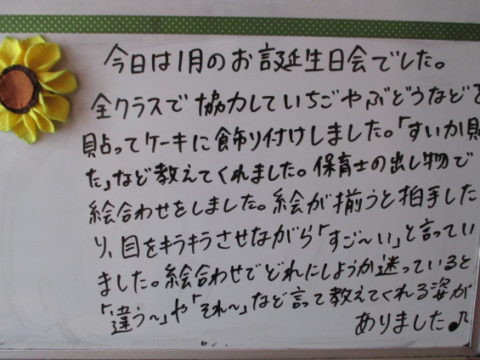 今日は1月のお誕生日会でした。
全クラスで協力していちごやぶどうなどを
貼ってケーキに飾り付けしました。「すいか貼
た」など教えてくれました。保育士の出し物で
絵合わせをしました。絵が揃うと拍手した
り、目をキラキラさせながら「すご〜い」と言ってい
ました。絵合わせでどれにしようか迷っていると
「違う〜」や「それ〜」など言って教えてくれる姿が
ありました♪